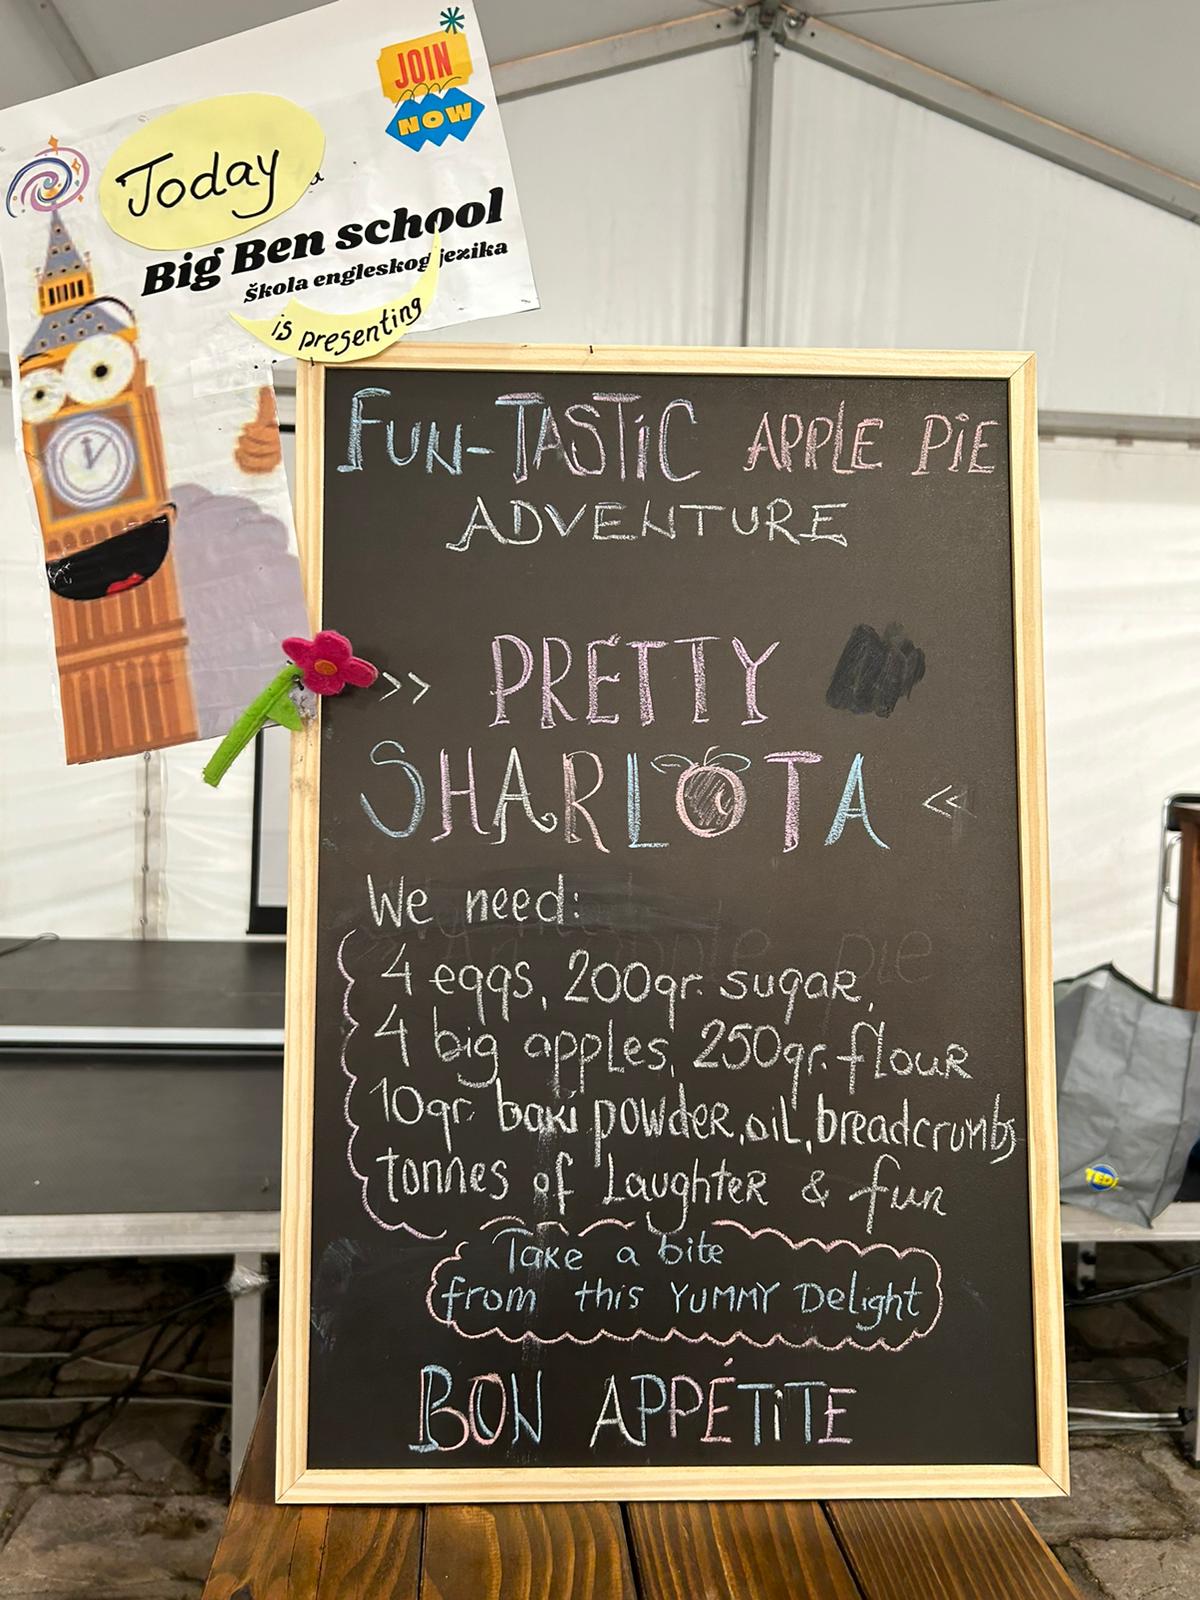 JOIN
NOW
Today
Big Ben school
Škola engleskog jezika
is presenting
FUN-TASTiC APPLE PiE
ADVENTURE
>> PRETTY
SHARLOTA <<
We need:
4 eggs, 200gr. sugar,
4 big apples, 250gr. flour
10gr baki powder, oil, breadcrumbs
tonnes of Laughter & fun
Take a bite
from this YUMMY Delight
BON APPÉTiTE
TEDi